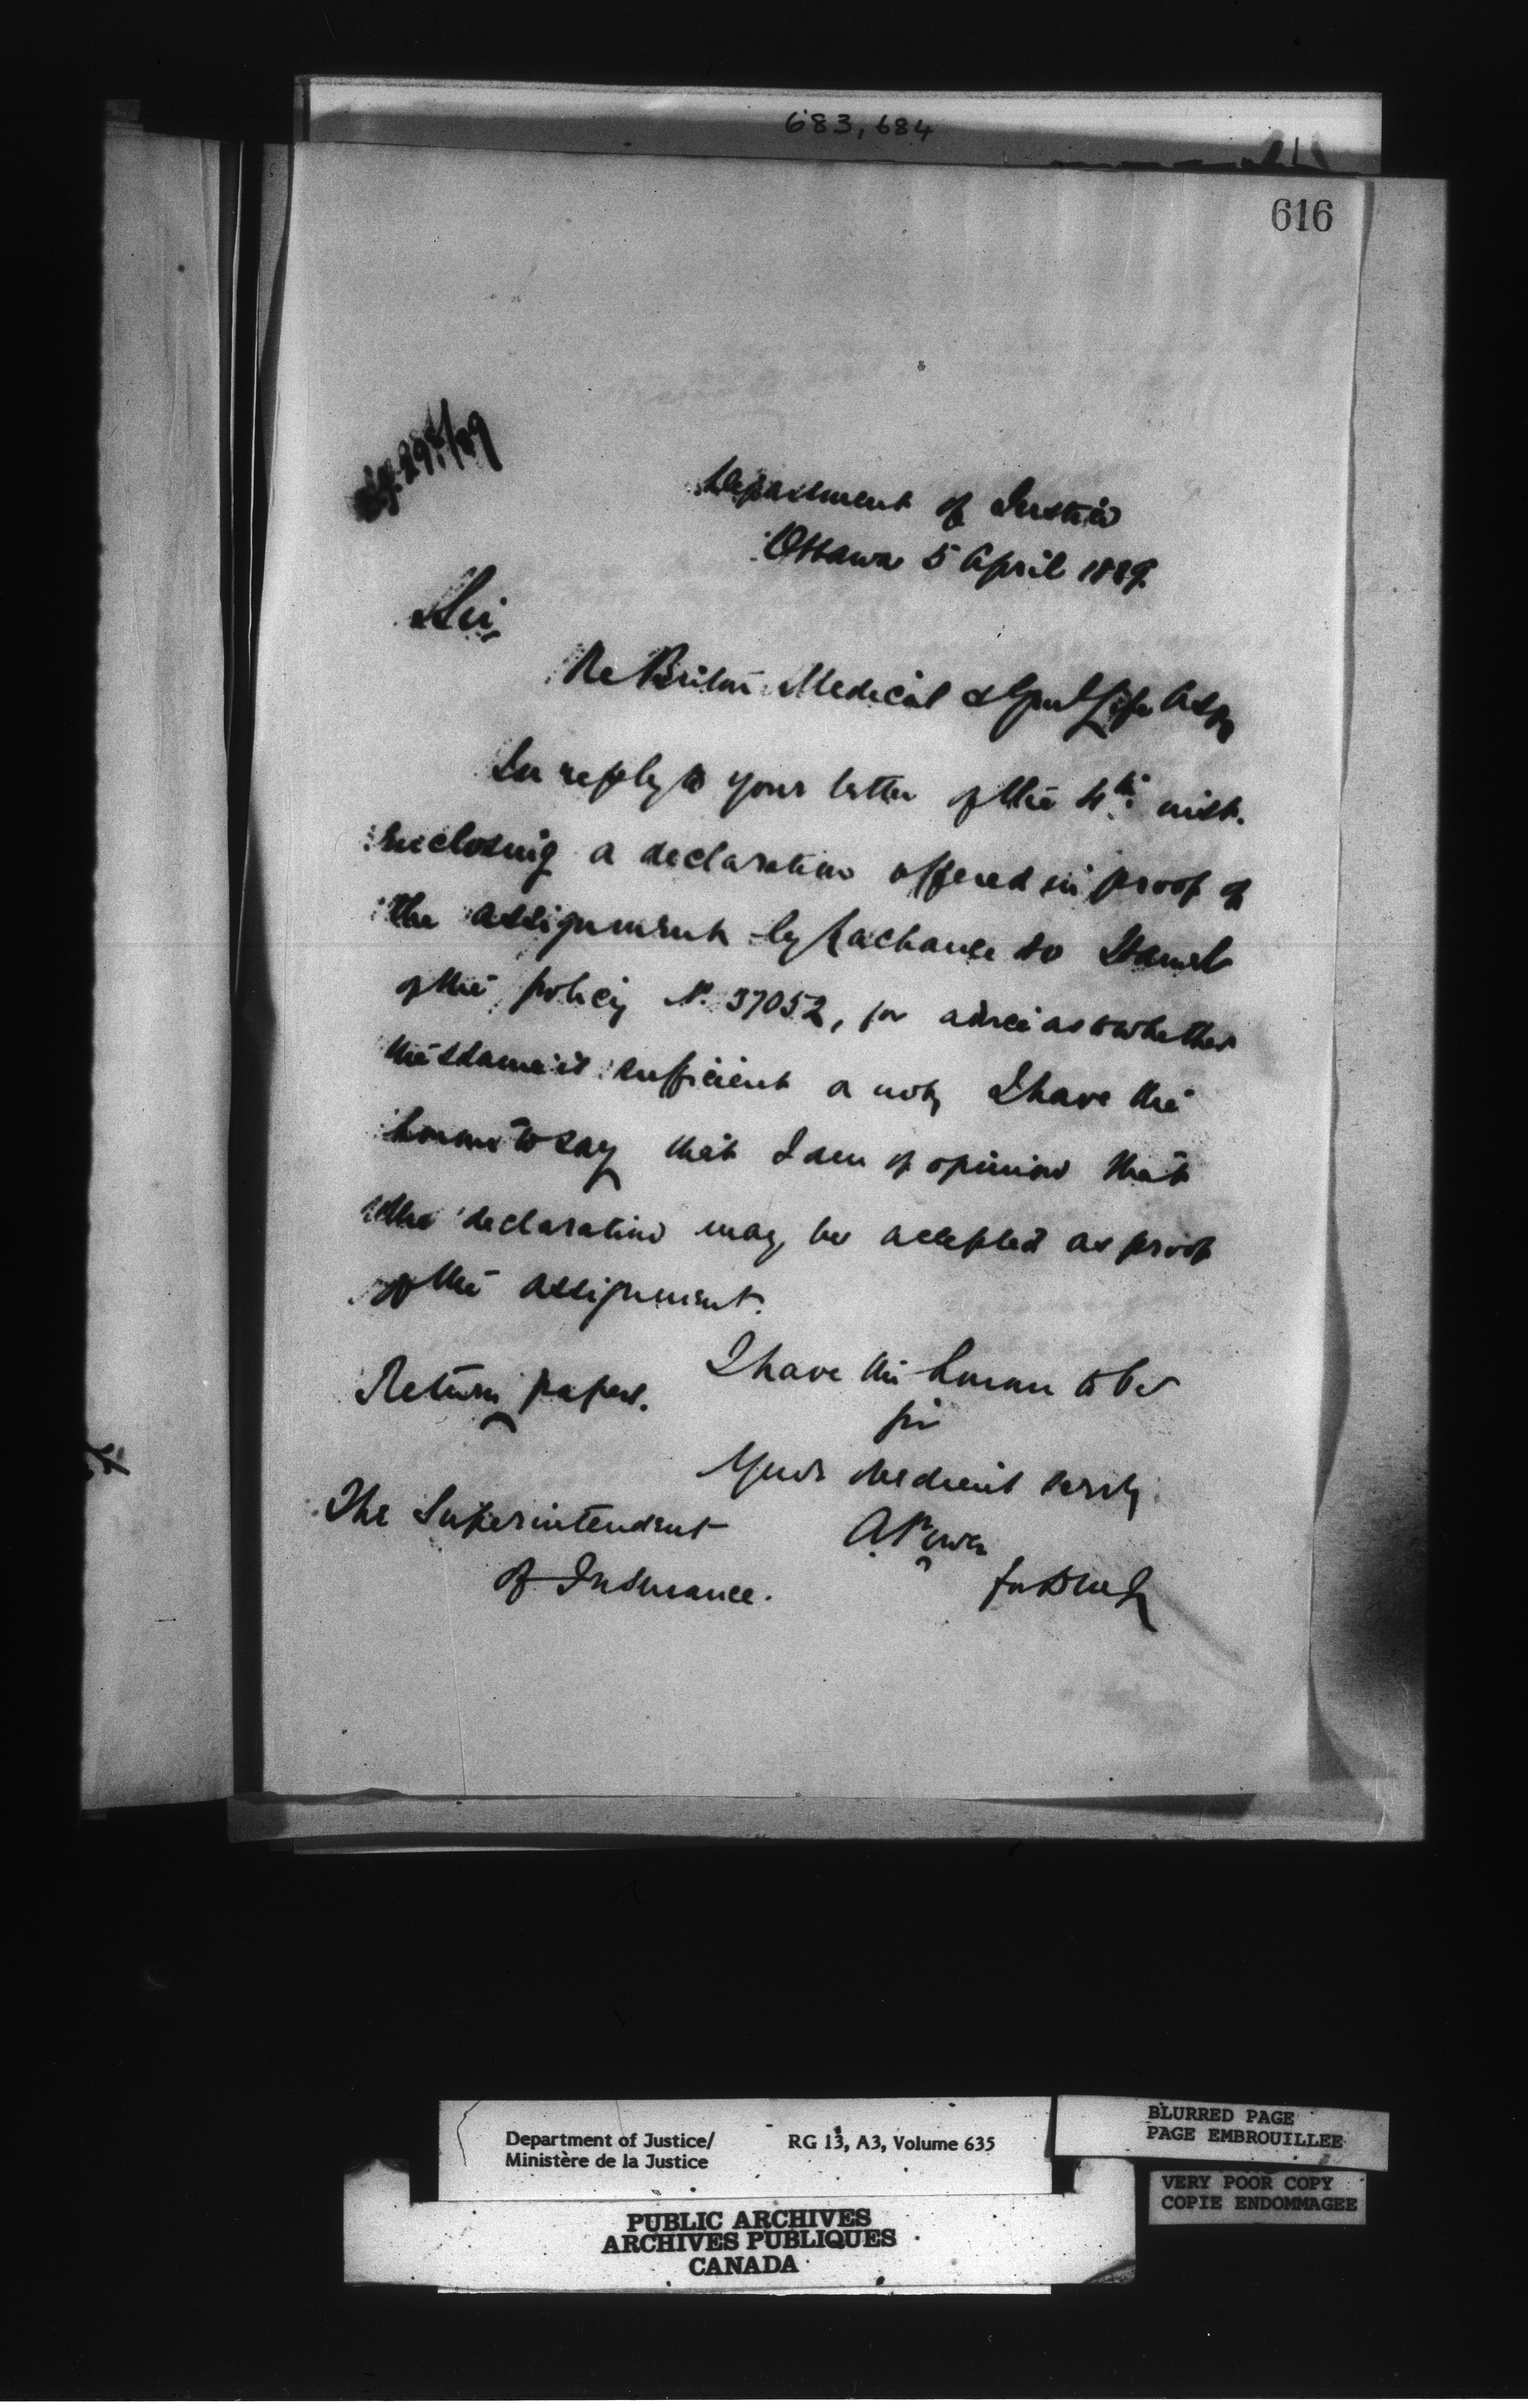 683, 684
616
Department of Justice
Ottawa 5 April 1889.
Sir,
Re Briton Medical & Genl Life Assn
In reply to your letter of the 4th inst.
enclosing a declaration offered in proof of
the assignment by Lachance to
of the policy No. 37052, for advice as to whether
the same is sufficient or not, I have the
honour to say that I am of opinion that
the declaration may be accepted as proof
of the assignment.
I have the honour to be
Return papers.
Sir
Your obedient servt,
The Superintendent
A Power
of Insurance.
for D M J
Department of Justice/ RG 13, A3, Volume 635
Ministère de la Justice
BLURRED PAGE
PAGE EMBROUILLEE
VERY POOR COPY
COPIE ENDOMMAGEE
PUBLIC ARCHIVES
ARCHIVES PUBLIQUES
CANADA